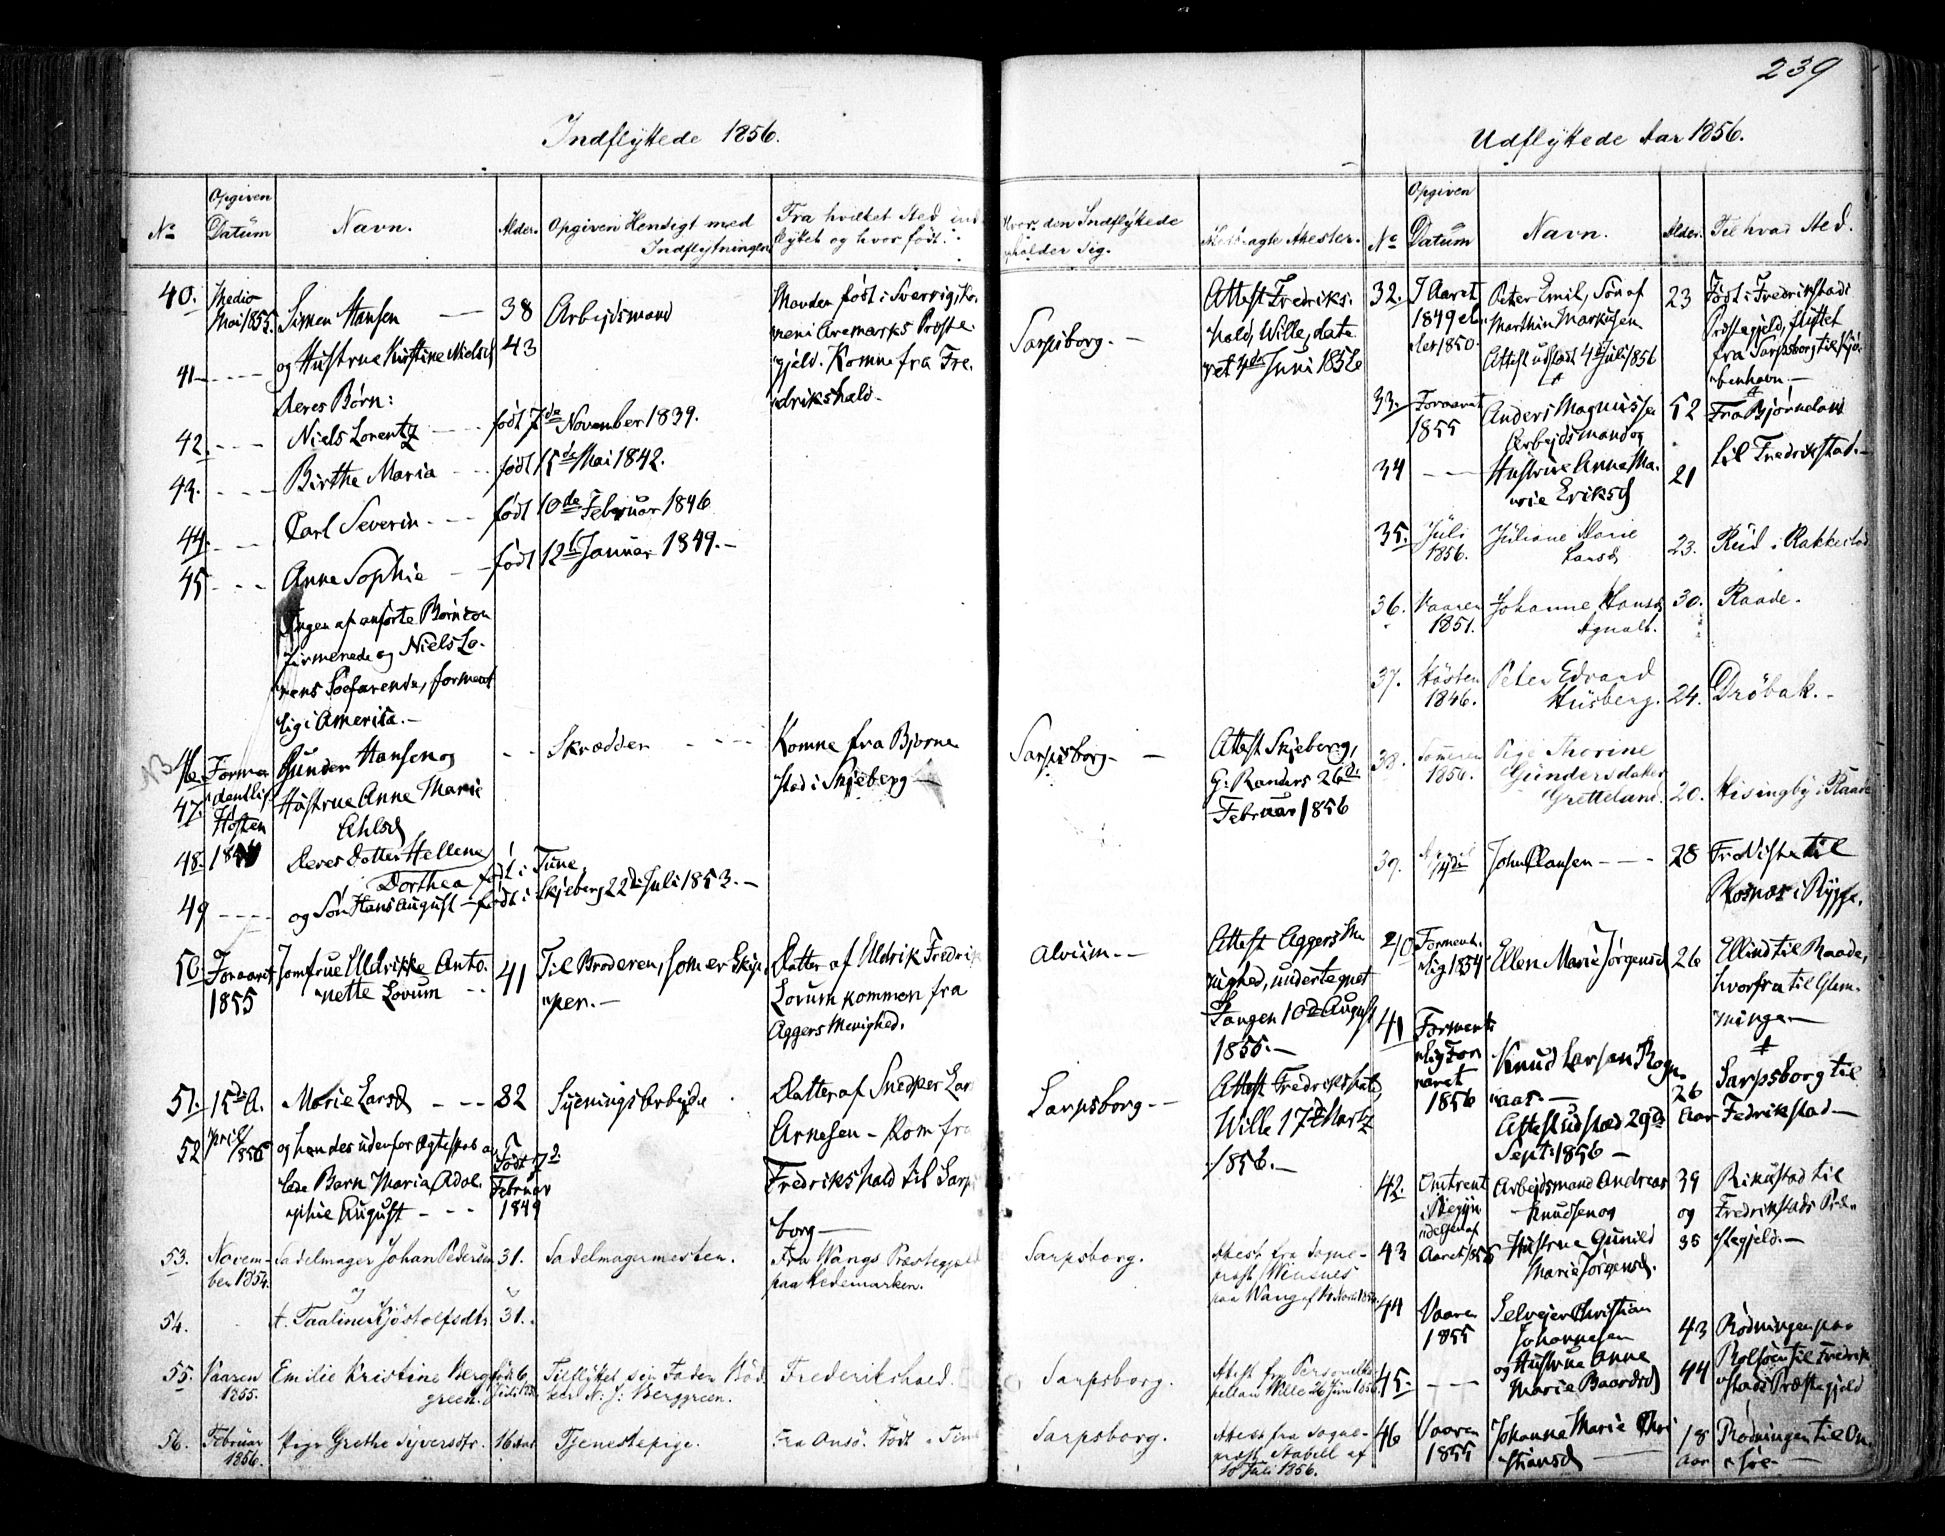 239
Indflyttede 1856.
No
Opgiven Datum
Navn.
Alder.
Opgiven Hensigt med Indflytningen
Fra hvilket Sted ind-
flyttet og hvor født.
Hvor den Indflyttede
opholder sig.
Medbragte Attester.
40. Medio Mai 1855. Simen Hansen — 38 Arbeidsmand
Manden født i Sverrig, Ko-
nen i Aremarks Præste-
gjeld. Komne fra Fre-
drikshald.
Sarpsborg. —
Attest Fredriks-
hald, Wille, date-
ret 4de Juni 1856
41 - - - - og Hustrue Kirstine Nielsd 43
deres Børn:
42. - - - Niels Lorentz - - - født 7de November 1839.
43. - - - - Birthe Maria - - - født 15de Mai 1842.
44. - - - Carl Severin - - - født 10de Februar 1846
45 - - - Anne Sophie - født 12te Januar 1849. —
Ingen af anførte Børn con-
firmerede og Niels Lo-
rens Søefarende, forment-
lig i America. —
NB 46 Formodentlig Høsten
Gunder Hansen og - - Skrædder - - - -
Komne fra Bjørne-
stad i Skjeberg
Sarpsborg — —
Attest Skjeberg,
G: Randers 26de
Februar 1856
47. Hustrue Anne Marie
Ahlsd
48. deres Datter Hellene
Dorthea født i Tune,
49 - - - - og Søn Hans August — født i Skjeberg 22de Juli 1853. —
50 Foraaret 1855
Jomfrue Uldrikke Anto-
nette Lovum - - 41
Til Broderen, som er Skip-
per. —
Datter af Uldrik Fredrik
Lovum kommen fra
Aggers Menighed.
Alviim. - -
Attest Aggers Me-
nighed, undertegnet
Tangen 10de August
1855. —
51. 15de A-
pril 1856
Marie Larsd - - - 32 Syenings Arbeide.
Datter af Snedker Lar
Arnesen - Kom fra
Fredrikshald til Sarps-
borg —
Sarpsborg - -
Attest Fredrikshald,
Wille 17de Martz
1856. —
52 og hendes udenfor Ægteskab av-
lede Barn Maria Adol-
phie August - - -
Født 7de
Februar
1849
53. Novem-
ber 1854. Sadelmager Johan Pedersen 31. Sadelmagermester.
Fra Wangs Præstegjeld
paa Hedemarken.
Sarpsborg.
Attest fra Sogne-
præst Winsnes
paa Wang
54. Taaline Kjøstolfsdtr 31.
55. Vaaren
1855. Emilie Kristine Berg-
green. født 6
Tilflyttet sin Fader Bød-
ker N: J: Berggreen. Frederikshald. Sarpsborg.
Attest fra Personelka-
pellan Wille 26 Juni
56. Februar
1856. Pige Grethe Syversdtr. 16 Aar Tjenestepige. Fra Onsø. Født i Tune Sarpsborg.
Attest fra Sogne-
præst Stabell af
10 Juli 1856.
Udflyttede Aar 1856.
No
Opgiven Datum
Navn.
Alder.
Til hvad Sted.
32. I Aaret
1849 el-
ler 1850.
Peter Emil, Søn af
Marthin Markusen
Attest udstædt 4de Juli 1856
23 Født i Fredrikstads
Præstegjeld, flyttet
fra Sarpsborg til Kjø-
benhavn. —
33. Foraaret
1855 Anders Magnussen
Arbeidsmand og 52 Fra Bjørneland
til Fredrikstad. —
34 - - - Hustrue Anne Ma-
rie Eriksd 21
35. Juli
1856. Juliane Marie
Larsd 23. Rud i Rakkestad
36. Vaaren
1851. Johanne Hansd
Agnalt. 30. Raade.
37. Høsten
1846. Peter Edvard
Husberg. 24. Drøbak. -
38. Sommeren
1856. Pige Thorine
Gundersdatter
Gretteland. 20. Hisingby i Raade
39. John Clausen - - - 28 Fra Viste til
Rosnæs i Rygge.
40 Forment-
lig 1854 Ellen Marie Jørgensd 26 Ellind til Raade,
hvorfra til Glem-
minge. —
41 Forment-
lig For-
aaret
1856 Knud Larsen Rogn-
aas. —
Attest udstæd 29de
Sept: 1856 —
26
Aar Sarpsborg til
Fredrikstad —
42. Omtrent
i Begyn-
delsen af
Aaret 1856 Arbeidsmand Andreas
Knudsen og 39
og Rikustad til
Fredrikstads Præ-
stegjeld. —
43 Hustrue Gunild
Marie Jørgensd. 35
44 Vaaren
1855 Selveier Christian
Johannesen 43 Rødningen paa
Rolsøen til Fredrik-
stads Præstegjeld
45. - - - og Hustrue Anne
Marie Baardsd 44
46 Vaaren
1855 Johanne Marie Chri-
stiansd 18
Aar Rødningen til On-
søe —